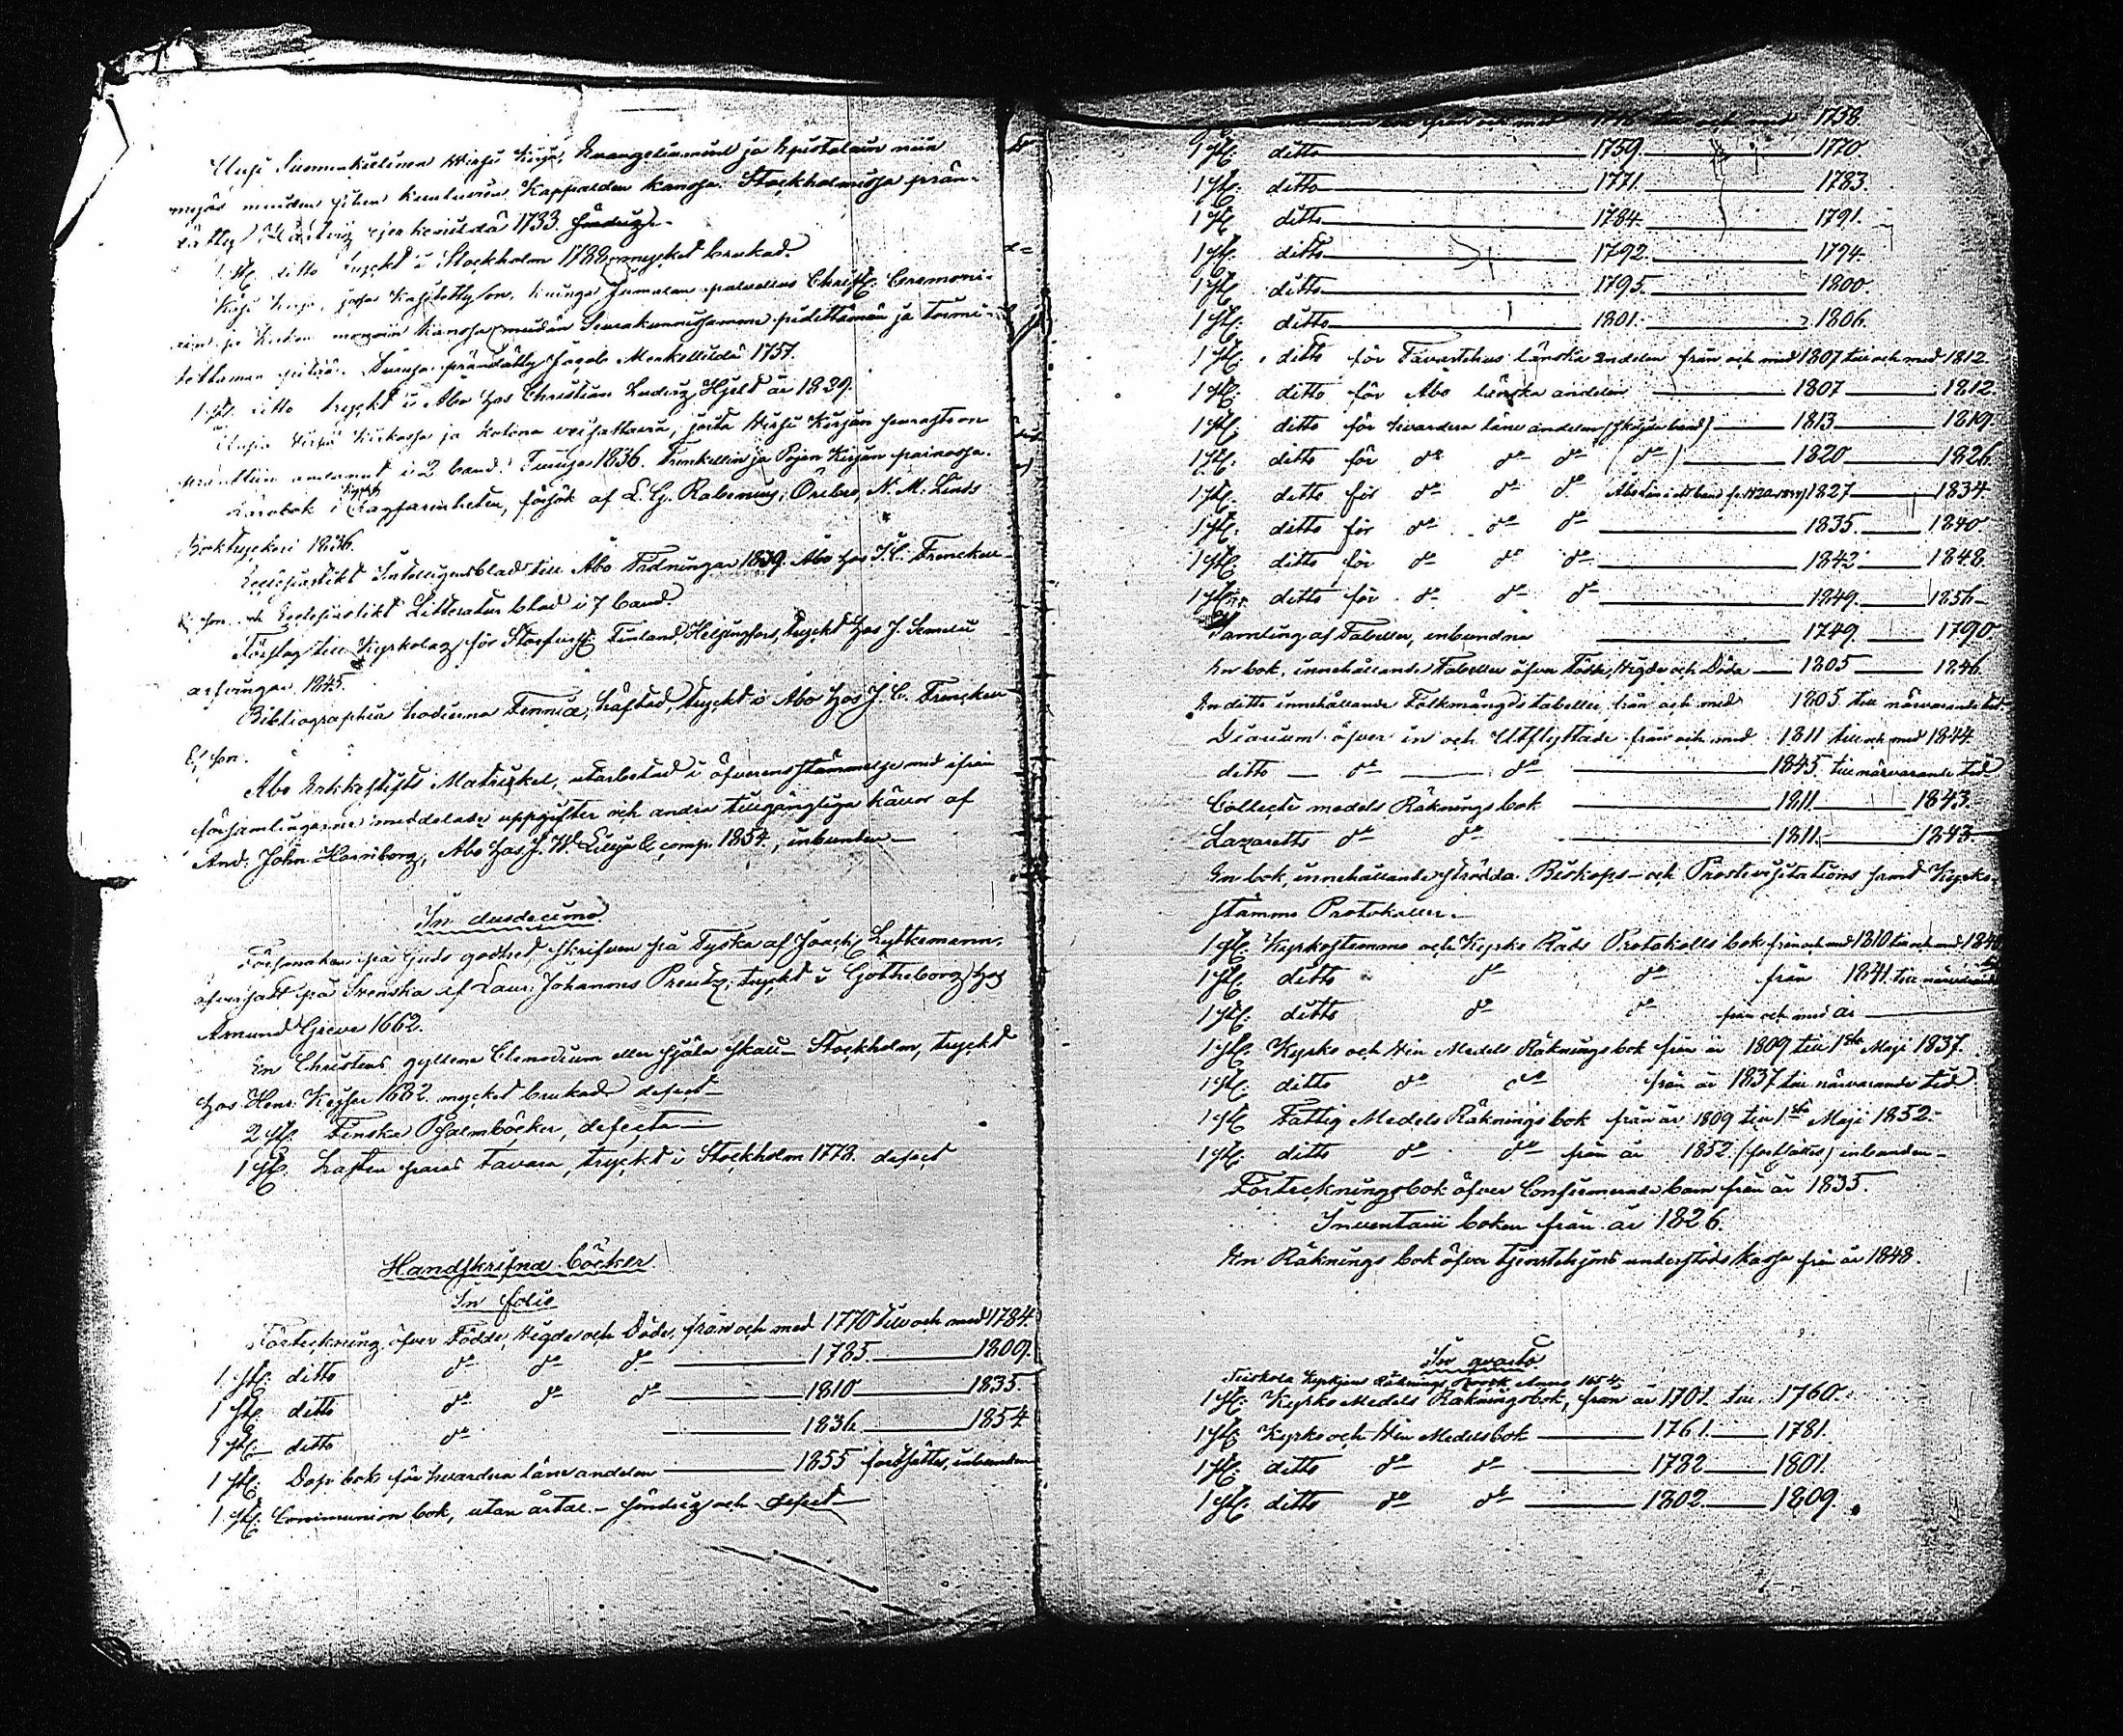 Uusi Suomenkielinen Wirsi Kirja, Evangeliumein ja Epistolain niin
myös muiden siihen kuuluvain Kappalden kanssa. Stockholmissa prän-
dätty Hartwig Gercken ildä 1733. söndrig.
1 st. ditto tryckt i Stockholm 1788 mycket brukad.
Käsi Kirja, josa Käsitetty on, kuinga Jumalan palvellus Christl. Ceremoni-
ain ja Kirkon menoin kanssa meidän Seurakunnisamme pidettämän ja toimi-
tettaman pitää. Turusa prändätty Jacob Merkellildä 1757.
1 st. ditto tryckt i Åbo hos Christian Ludvig Hjelt år 1829.
Uusia Wirsiä Kirkossa ja kotona veisattavia, josta Wirsi Kirjan seurassa on
präntttiin andanut i 2 band. Turusa 1836. Frenckellin ja Pojan Kirjan painossa.
Lärobok i Kyrko Lagfarenheten, försök af L. G. Rabenius, Örebro, N. M. Linds
Boktryckeri 1836.
Ecclesiastikt Intelligensblad till Åbo Tidningar 1839. Åbo hos J. C. Frenckell
& son. och Ecclesiastikt Litteraturblad i 7 band.
Förslag till Kyrkolag för Storfurst: Finland, Helsingfors, tryckt hos J. Simelii
arfvingar 1845.
Bibliographia hodierna Fennica, häftad, tryckt i Åbo hos J. C. Frenckell
& son.
Åbo Erkestifts Matrickel, utarbetad i öfverensstämmelse med ifrån
församlingarne meddelade uppgifter och andra tillgängliga källor af
And. John Hornborg, Åbo hos J. W. Lillja & comp. 1854, inbunden
In duodecimo
Försmaken på Guds godhet skrifven på Tyska af Joach: Lytkemann,
öfversatt på Svenska af Laur: Johannis Preutz, tryckt i Götheborg hos
Amund Greve 1662.
En Christens gyllene Clenodium eller Själa skatt - Stockholm, tryckt
hos Henr. Keyser 1682. mycket brukad defect
2 st. Finska Psalmböcker, defecta
1 st. Lasten paras tavara, tryckt i Stockholm 1772. defect
Handskrifna böcker
In folio
Förteckning öfver Födde, Vigde och Döde, från och med 1770 till och med 1784.
1. st. ditto do do do 1785 1809.
1 st. ditto do do do 1810 1835.
1 st. ditto do 1836 1854
1 st. Dopbok för hvardera läns andelen 1855 fortsättes, inbunden
1. st. Communion bok, utan årtal - söndrig och defect
från och med till och med 1758.
1 st. ditto 1759. 1770.
1 st. ditto 1771. 1783.
1 st. ditto 1784. 1791.
1 st. ditto 1792. 1794.
1 st. ditto 1795. 1800.
1 st. ditto 1801. 1806.
1 st. ditto för Tavastehus länska andelen från och med 1807 till och med 1812.
1 st. ditto för Åbo länska andelen 1807 1812.
1 st. ditto för hvardera läns andelen (skiljda band) 1813 1819.
1 st. ditto för do do do (do) 1820 1826.
1 st. ditto för do do do 1827 1834
1 st. ditto för do do do 1835 1840
1 st. ditto för do do do 1842 1848.
1 st. ditto för do do do 1849. 1856
Samling af Tabeller, inbundna 1749 1790
En bok, innehållande Tabeller öfver Födde, Vigde och Döde 1805 1846
En ditto innehållande Folkmängds tabeller från och med 1805 till närvarande tid.
Diarium öfver in och Utflyttade från och med 1811 till och med 1844.
ditto do do 1845. till närvarande tid
Collecte medels Räknings bok 1811 1843.
Lazaretts do do 1811. 1843.
En bok, innehållande strödda Biskops- och Prostevisitations samt Kyrko-
stämmo Protokoller.
1 st. Kyrkostämmo och Kyrko Råds Protokolls bok från och med 1810 till och med 1840
1 st. ditto do do från 1841. till närvarande
1 st. ditto do do från och med år
1 st. Kyrko och Vin Medels Räkningsbok från år 1809 till 1sta Maji 1837.
1 st. ditto do do från år 1837 till närvarande tid
1 st. Fattig Medels Räknings bok från år 1809 till 1sta Maji 1852.
1 st. ditto do do från år 1852 (fortsättes) inbunden
Förteckningsbok öfver Confirmerade barn från år 1835.
Inventarii boken från år 1826.
En Räknings bok öfver tjenstehjons understöds kassa från år 1848.
In quarto
Kyrkjon Räknings book Anno 1654
1 st. Kyrko Medels Räkningsbok, från år 1701. till 1760.
1 st. Kyrko och Vin Medelsbok 1761. 1781.
1 st. ditto do do 1782 1801.
1 st. ditto do do 1802 1809.